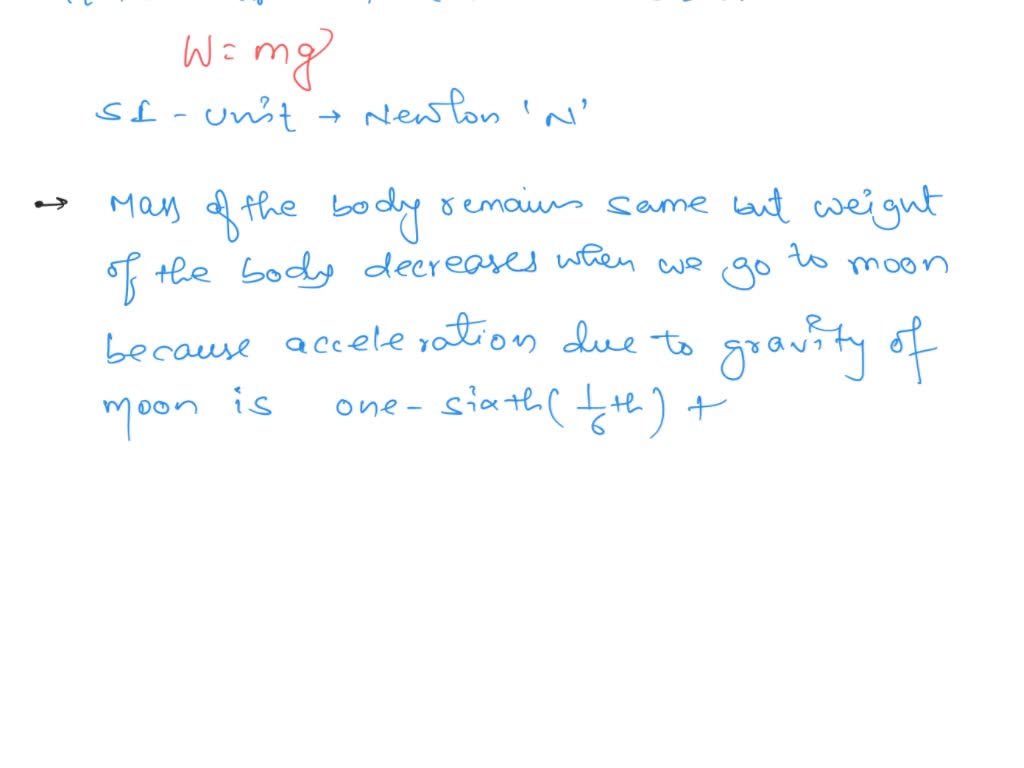 W = mg
SI - unit → Newton 'N'
→ Mass of the body remains same but weight
of the body decreases when we go to moon
because acceleration due to gravity of
moon is one - sixth ( 1/6 th ) t